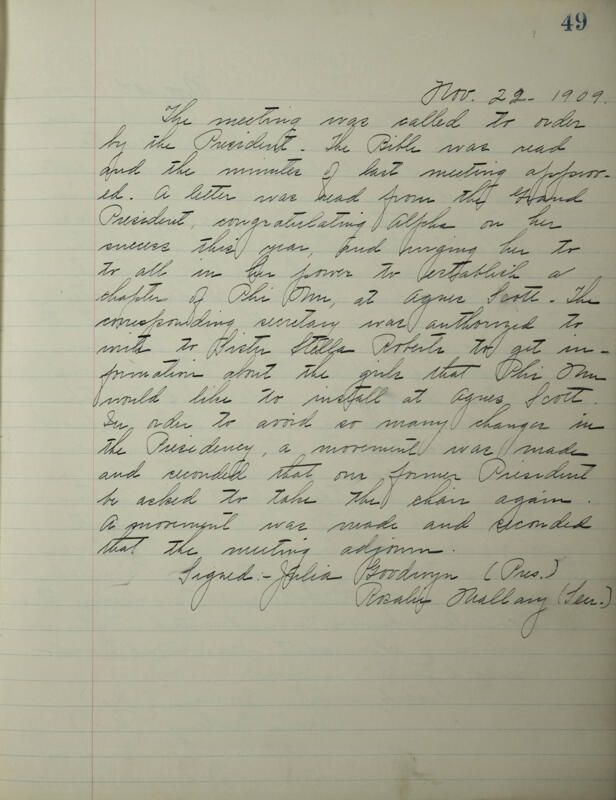 49
Nov. 22 - 1909.
The meeting was called to order
by the President. The Bible was read
and the minutes of last meeting approv-
ed. A letter was read from the Grand
President, congratulating Alpha on her
success this year, and urging her to
to all in her power to establish a
chapter of Phi Mu, at Agnes Scott. The
corresponding secretary was authorized to
write to Sister Stella Roberts to get in-
formation about the girls that Phi Mu
would like to install at Agnes Scott.
In order to avoid so many changes in
the Presidency, a movement was made
and seconded that our former President
be asked to take the chair again.
A movement was made and seconded
that the meeting adjourn.
Signed:- Julia Goodwyn (Pres.)
Rosalie Mallary (Sec.)